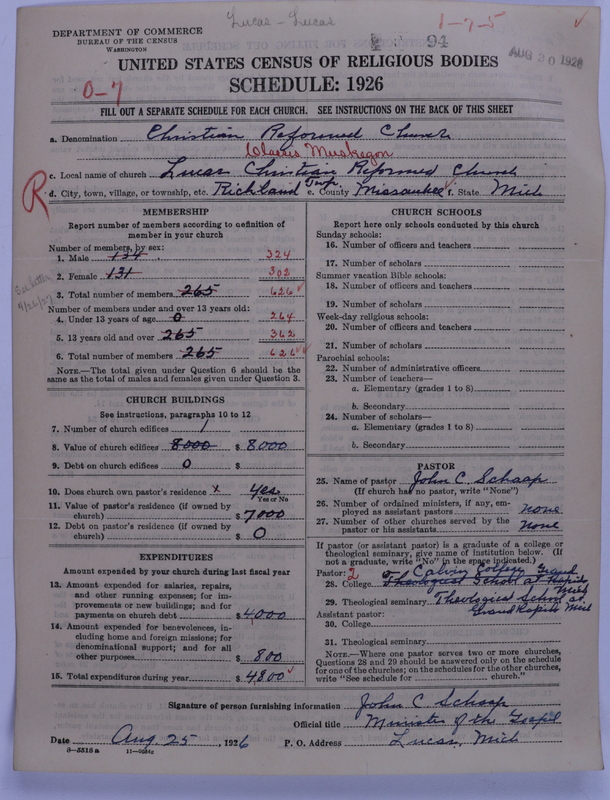 Lucas - Lucas
1-7-5
DEPARTMENT OF COMMERCE
BUREAU OF THE CENSUS
WASHINGTON
94
AUG 30 1926
UNITED STATES CENSUS OF RELIGIOUS BODIES
0-7
SCHEDULE: 1926
FILL OUT A SEPARATE SCHEDULE FOR EACH CHURCH. SEE INSTRUCTIONS ON THE BACK OF THIS SHEET
a. Denomination Christian Reformed Church
Classis Muskegon
c. Local name of church Lucas Christian Reformed Church
R
d. City, town, village, or township, etc. Richland Twp. e. County Missaukee f. State Mich
MEMBERSHIP
Report number of members according to definition of
member in your church
Number of members, by sex:
1. Male 134 324
2. Female 131 302
3. Total number of members 265 626
See letter
Number of members under and over 13 years old:
4. Under 13 years of age 0 264
5. 13 years old and over 265 362
6. Total number of members 265 626
NOTE.—The total given under Question 6 should be
same as the total of males and females given under Question 3.
CHURCH BUILDINGS
See instructions, paragraphs 10 to 12
7. Number of church edifices 1
8. Value of church edifices 8000 $ 8000
9. Debt on church edifices 0 $
10. Does church own pastor's residence x yes
Yes or No
11. Value of pastor's residence (if owned by
church) $ 7000
12. Debt on pastor's residence (if owned by
church) $ 0
EXPENDITURES
Amount expended by your church during last fiscal year
13. Amount expended for salaries, repairs,
and other running expenses; for im-
provements or new buildings; and for
payments on church debt $ 4000
14. Amount expended for benevolences, in-
cluding home and foreign missions; for
denominational support; and for all
other purposes $ 800
15. Total expenditures during year $ 4800
CHURCH SCHOOLS
Report here only schools conducted by this church
Sunday schools:
16. Number of officers and teachers
17. Number of scholars
Summer vacation Bible schools:
18. Number of officers and teachers
19. Number of scholars
Week-day religious schools:
20. Number of officers and teachers
21. Number of scholars
Parochial schools:
22. Number of administrative officers
23. Number of teachers—
a. Elementary (grades 1 to 8)
b. Secondary
24. Number of scholars—
a. Elementary (grades 1 to 8)
b. Secondary
PASTOR
25. Name of pastor John C. Schaap
(If church has no pastor, write "None")
26. Number of ordained ministers, if any, em-
ployed as assistant pastors none
27. Number of other churches served by the
pastor or his assistants none
If pastor (or assistant pastor) is a graduate of a college or
theological seminary, give name of institution below. (If
not a graduate, write "No" in the space indicated.)
Pastor: 2 Calvin College Grand
28. College Theological School at Rapids
Mich
29. Theological seminary Theological School at
Grand Rapids Mich
Assistant pastor:
30. College
31. Theological seminary
NOTE.—Where one pastor serves two or more churches,
Questions 28 and 29 should be answered only on the schedule
for one of the churches; on the schedules for the other churches,
write "See schedule for church."
Signature of person furnishing information John C. Schaap
Official title Minister of the Gospel
Date Aug 25, 1926 P. O. Address Lucas, Mich
8-5518a